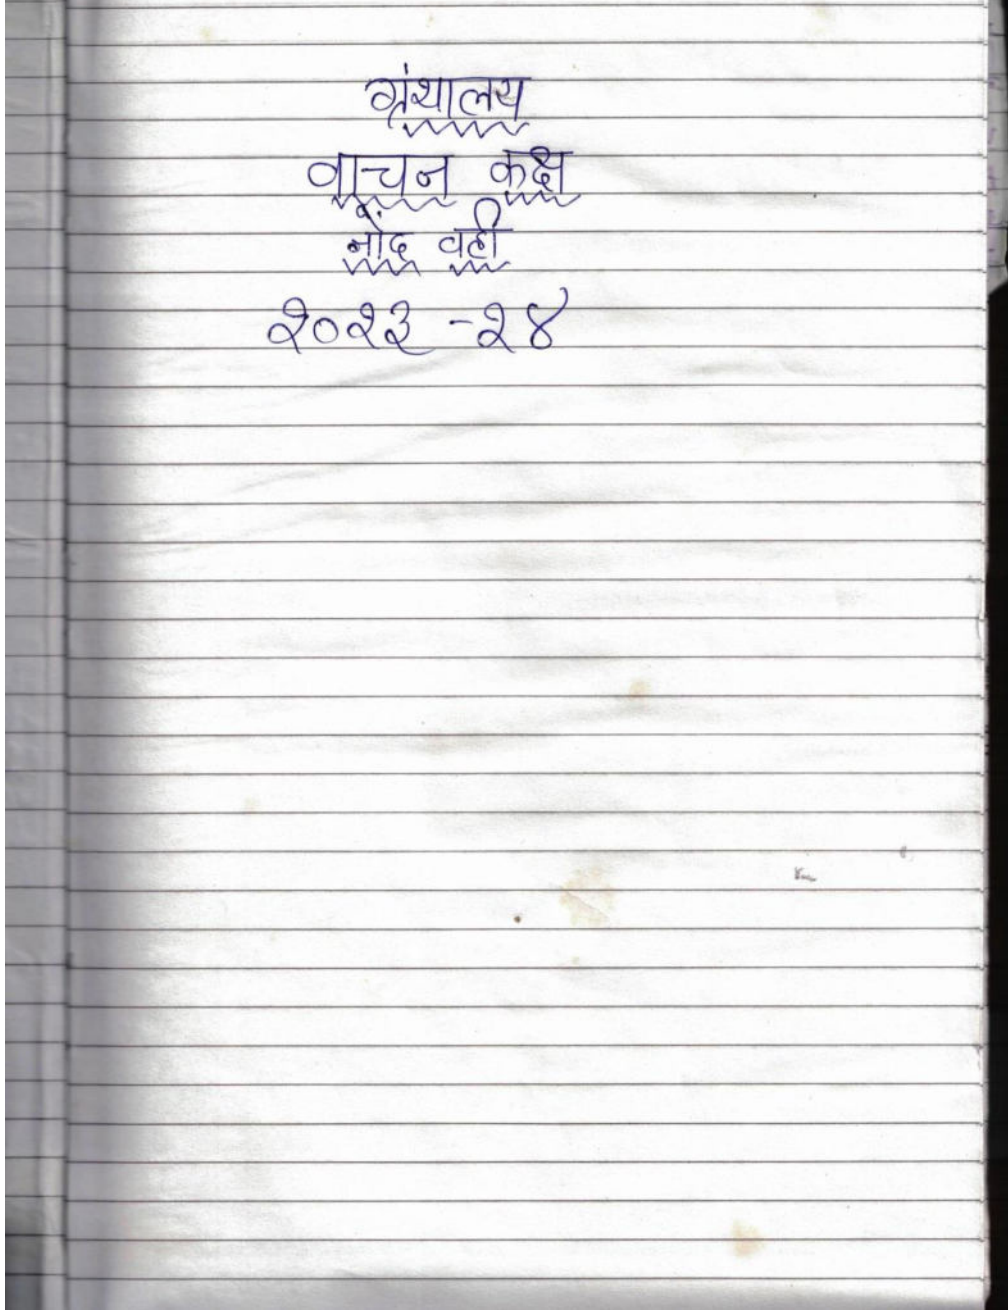 ग्रंथालय
वाचन कक्ष
नोंद वही
२०२३ -२४